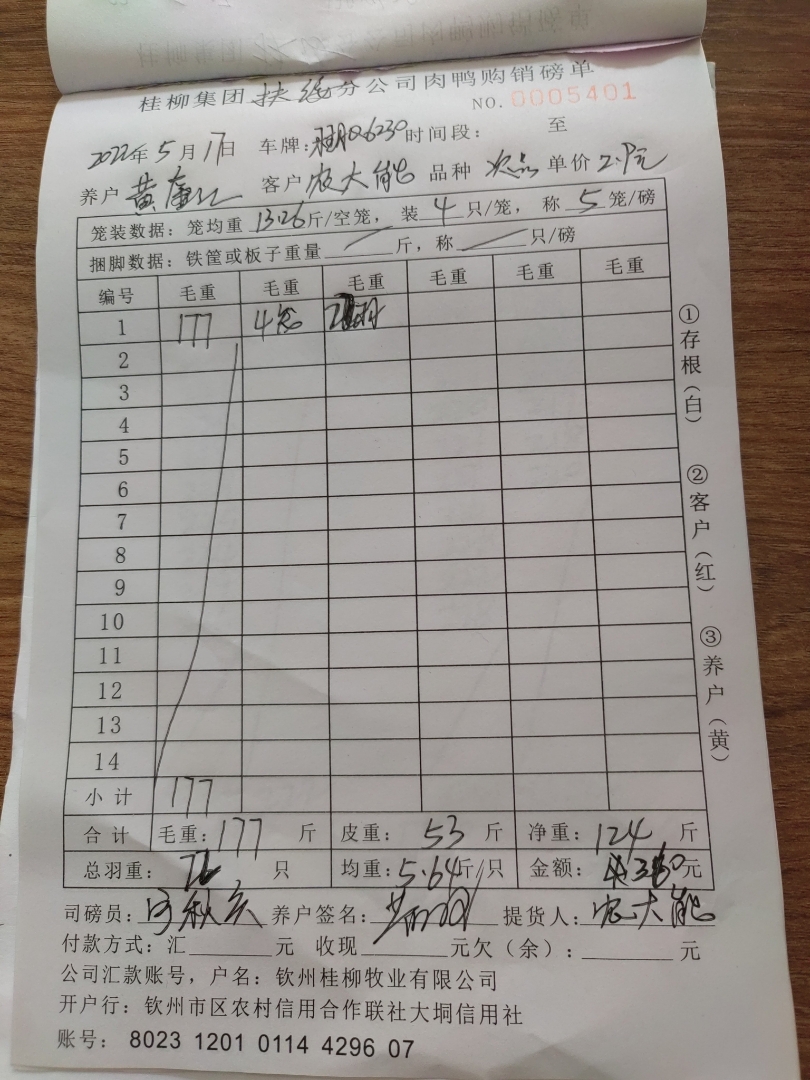 桂柳集团扶绥分公司肉鸭购销磅单
NO.0005401
2022年5月17日 车牌: Q6230 时间段: 至
养户 黄 客户 农大能 品种 次品 单价 2.9元
笼装数据: 笼均重 13.26 斤/空笼, 装 4 只/笼, 称 5 笼/磅
捆脚数据: 铁筐或板子重量 斤, 称 只/磅
编号 毛重 毛重 毛重 毛重 毛重 毛重
1 177 4笼
2
3
4
5
6
7
8
9
10
11
12
13
14
小计 177
合计 毛重: 177 斤 皮重: 53 斤 净重: 124 斤
总羽重: 只 均重: 5.64 斤/只 金额: 360 元
司磅员: 养户签名: 提货人: 农大能
付款方式: 汇 元 收现 元欠(余): 元
公司汇款账号, 户名: 钦州桂柳牧业有限公司
开户行: 钦州市区农村信用合作联社大垌信用社
账号: 8023 1201 0114 4296 07
①存根(白)
②客户(红)
③养户(黄)